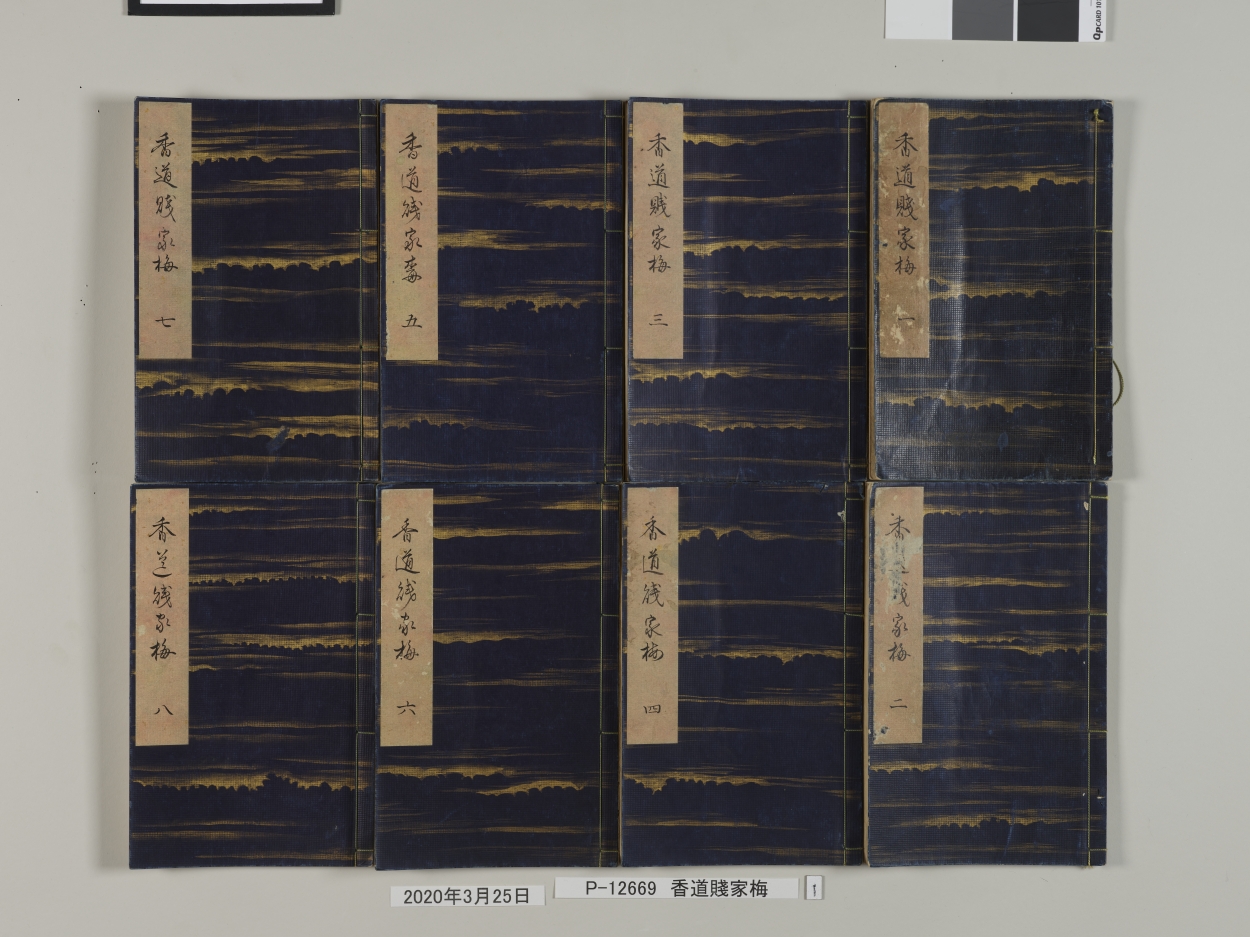 香道賤家梅 一
香道賤家梅 二
香道賤家梅 三
香道賤家梅 四
香道賤家梅 五
香道賤家梅 六
香道賤家梅 七
香道賤家梅 八
2020年3月25日
P-12669 香道賤家梅
1
QpCARD 101